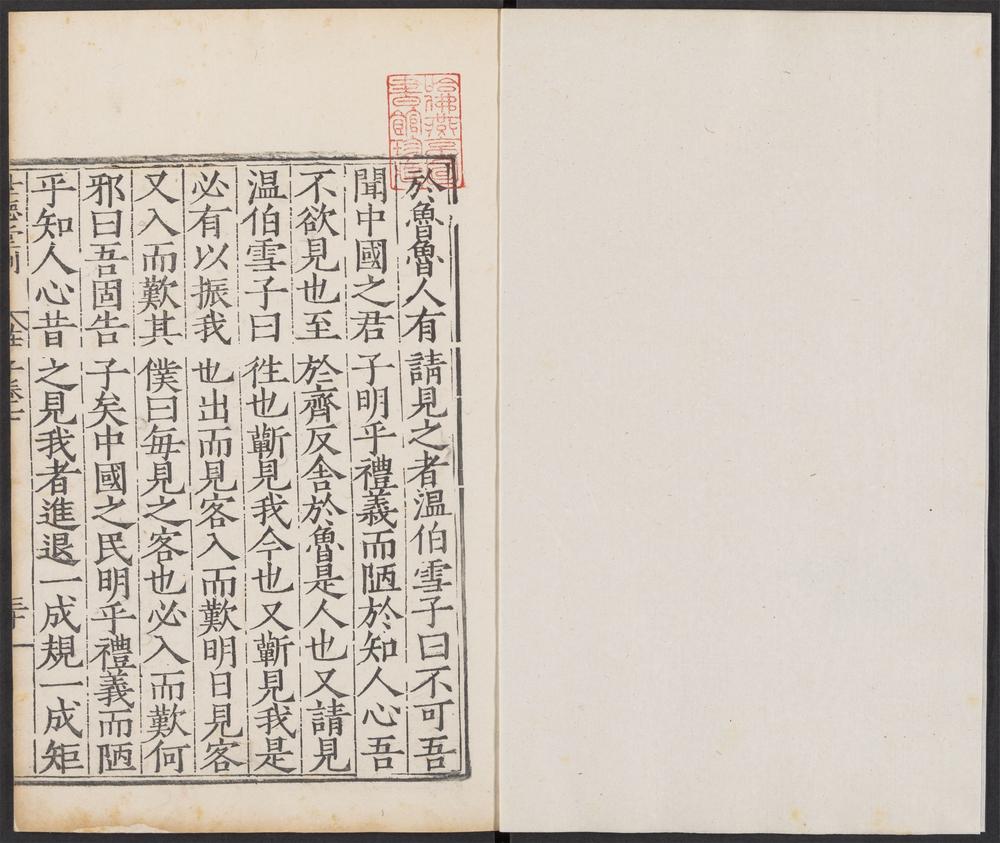 哈佛燕京圖
書館珍藏
於魯魯人有請見之者温伯雪子曰不可吾
聞中國之君子明乎禮義而陋於知人心吾
不欲見也至於齊反舍於魯是人也又請見
温伯雪子曰徃也蘄見我今也又蘄見我是
必有以振我也出而見客入而歎明日見客
又入而歎其僕曰每見之客也必入而歎何
邪曰吾固告子矣中國之民明乎禮義而陋
乎知人心昔之見我者進退一成規一成矩